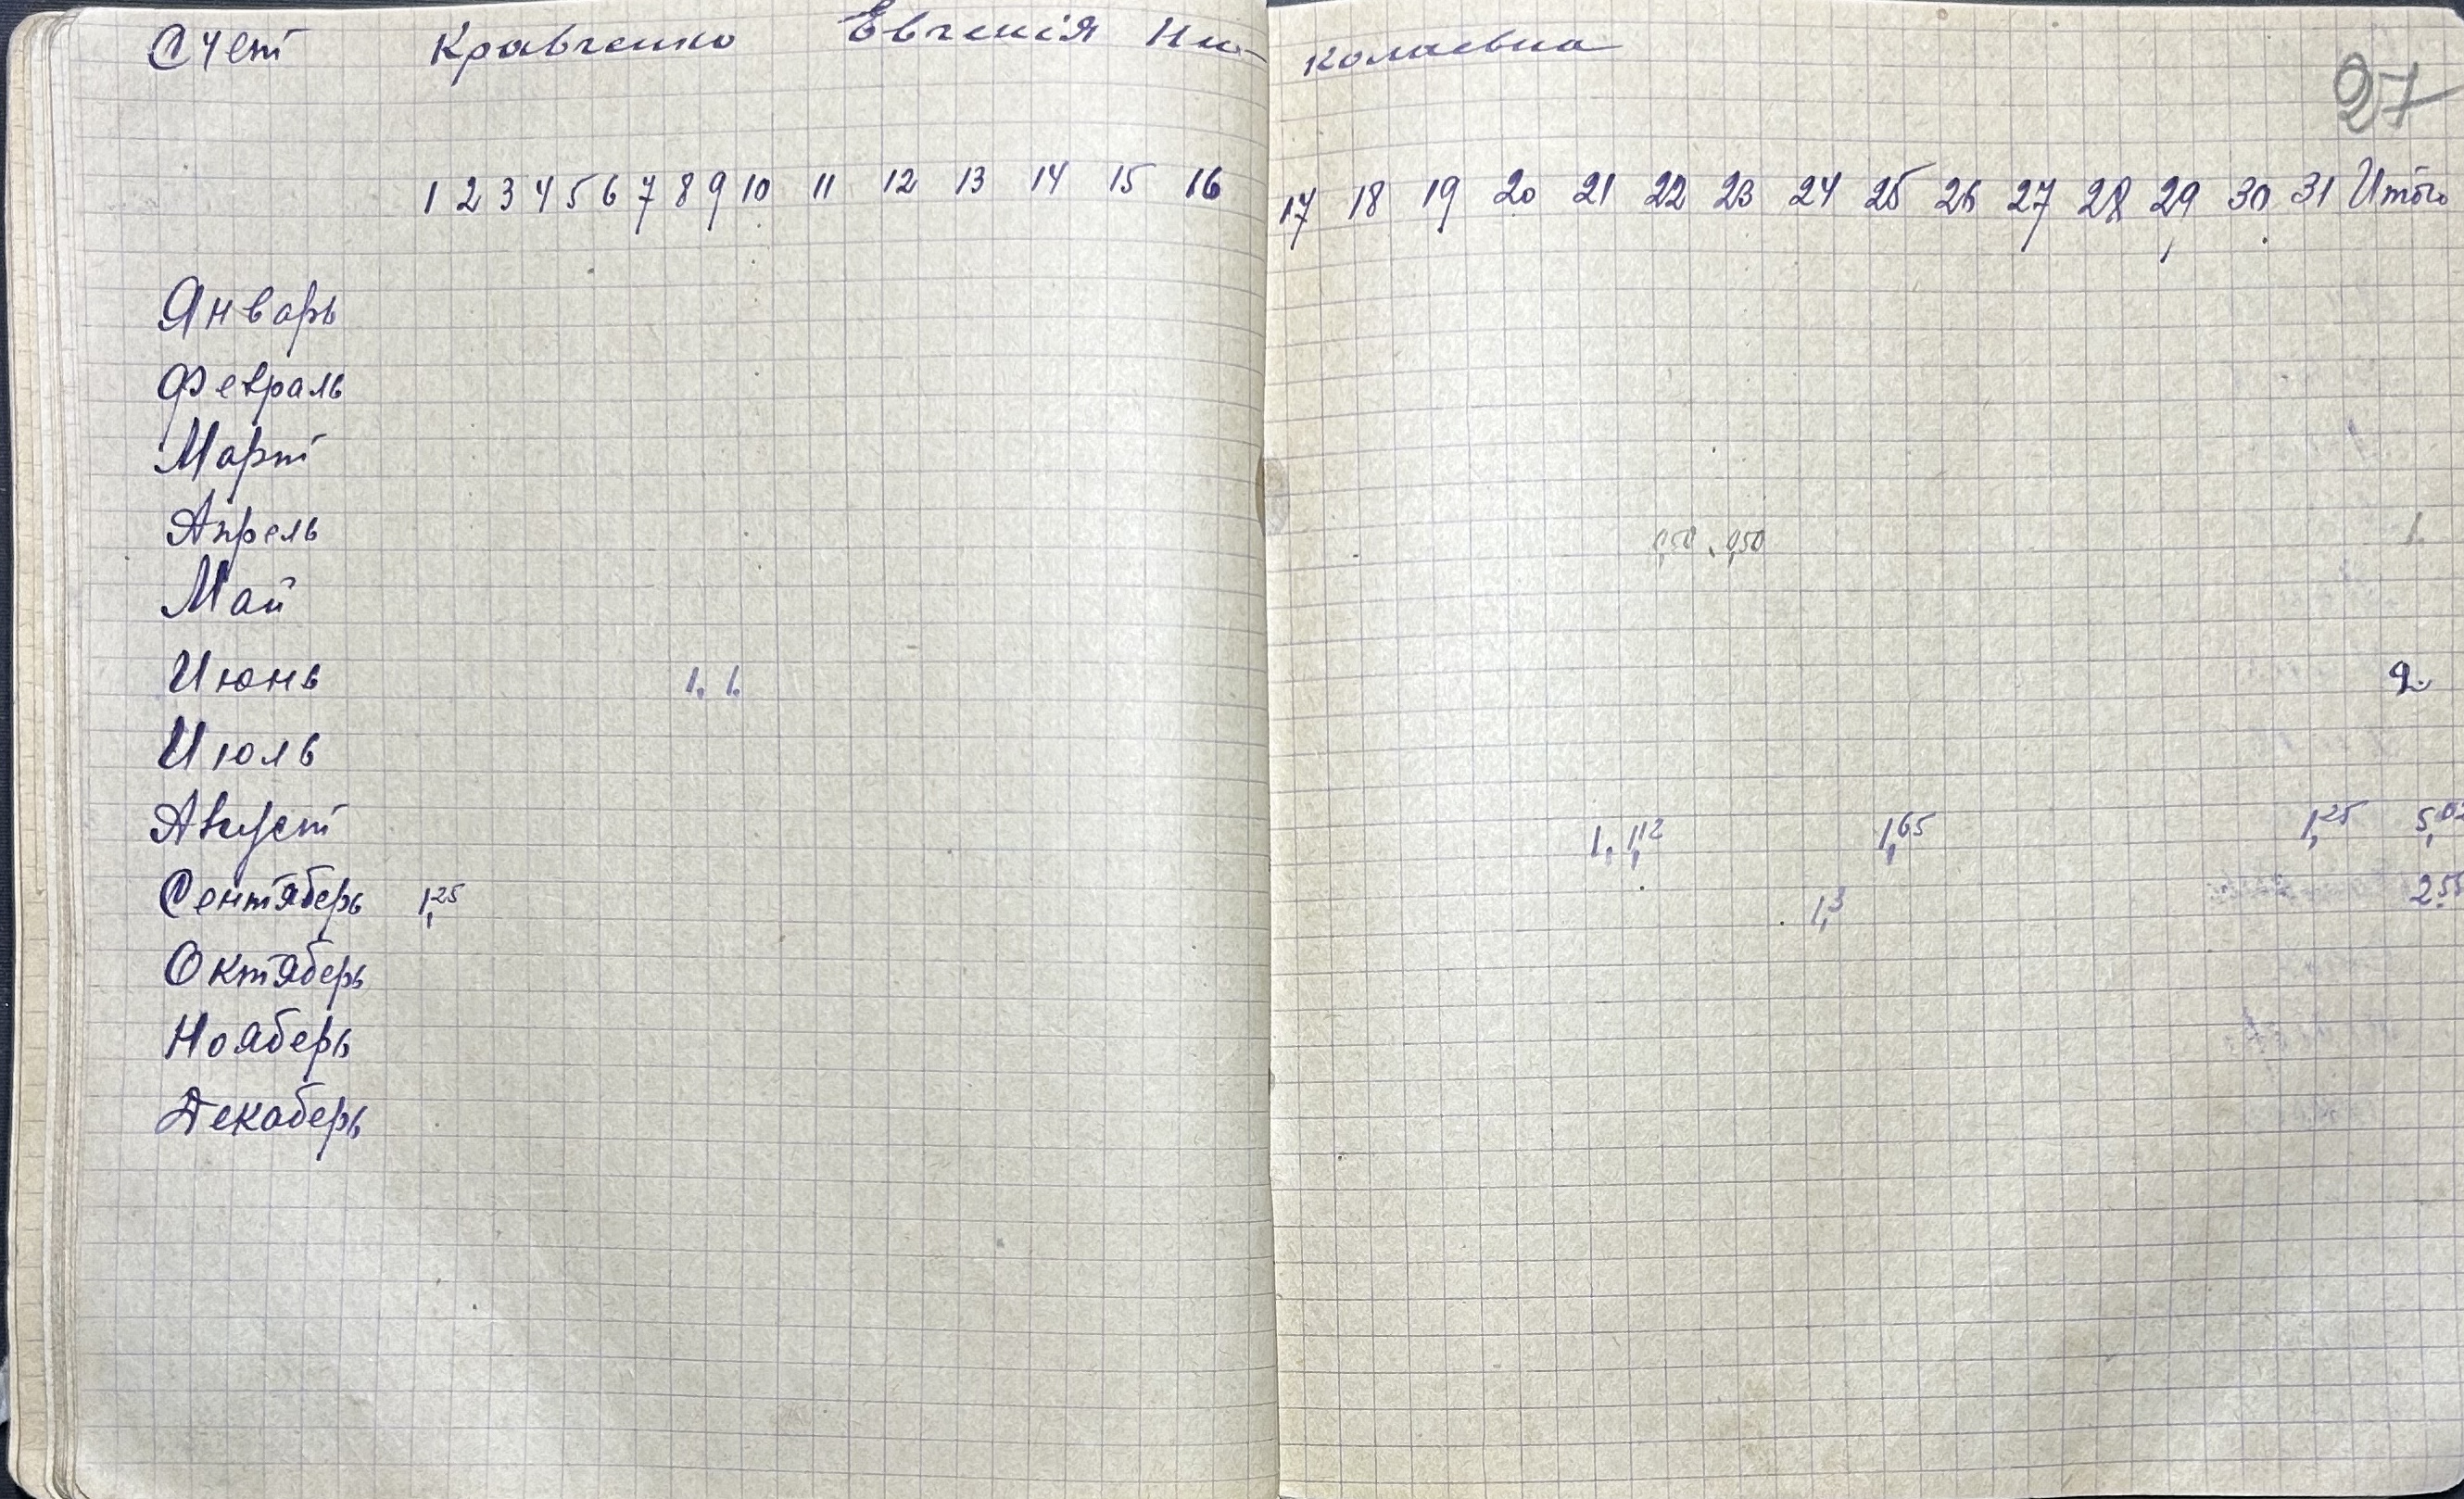 Счет Кравченко Евгенія Ни-колаевна
27
1 2 3 4 5 6 7 8 9 10 11 12 13 14 15 16 17 18 19 20 21 22 23 24 25 26 27 28 29 30 31 Итого
Январь
Февраль
Март
Апрель 0,50 0,50 1.
Май
Июнь 1, 1. 2.
Июль
Август 1, 1,12 1,65 1,25 5,02
Сентяберь 1,25 1,3 2.55
Октяберь
Нояберь
Декаберь